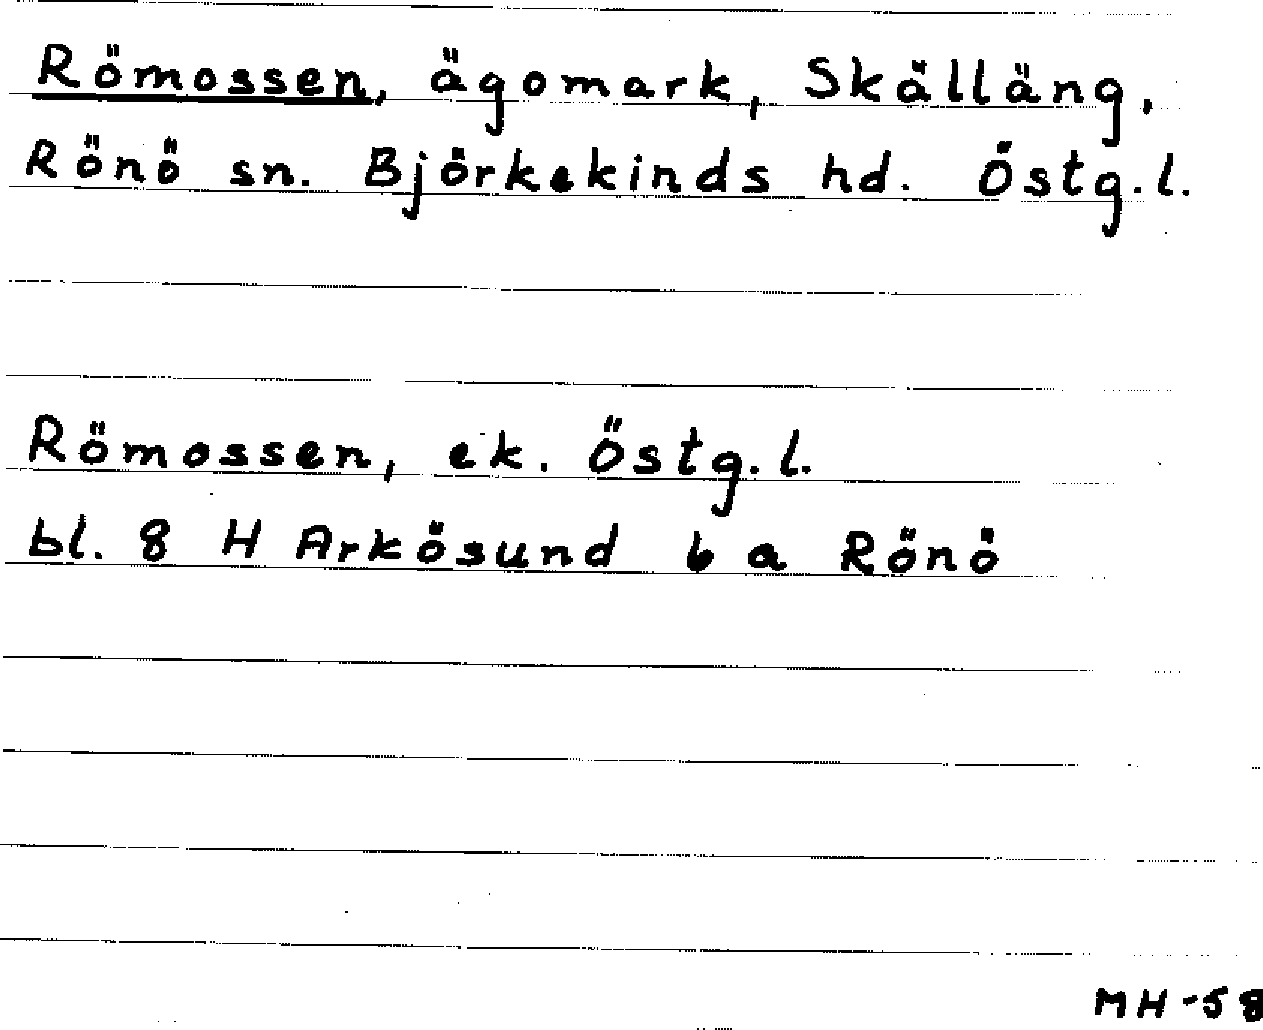 Römossen, ägomark, Skälläng,
Rönö sn. Björkekinds hd. Östg.l.
Römossen, ek. Östg.l.
bl. 8 H Arkösund 6 a Rönö
MH-58